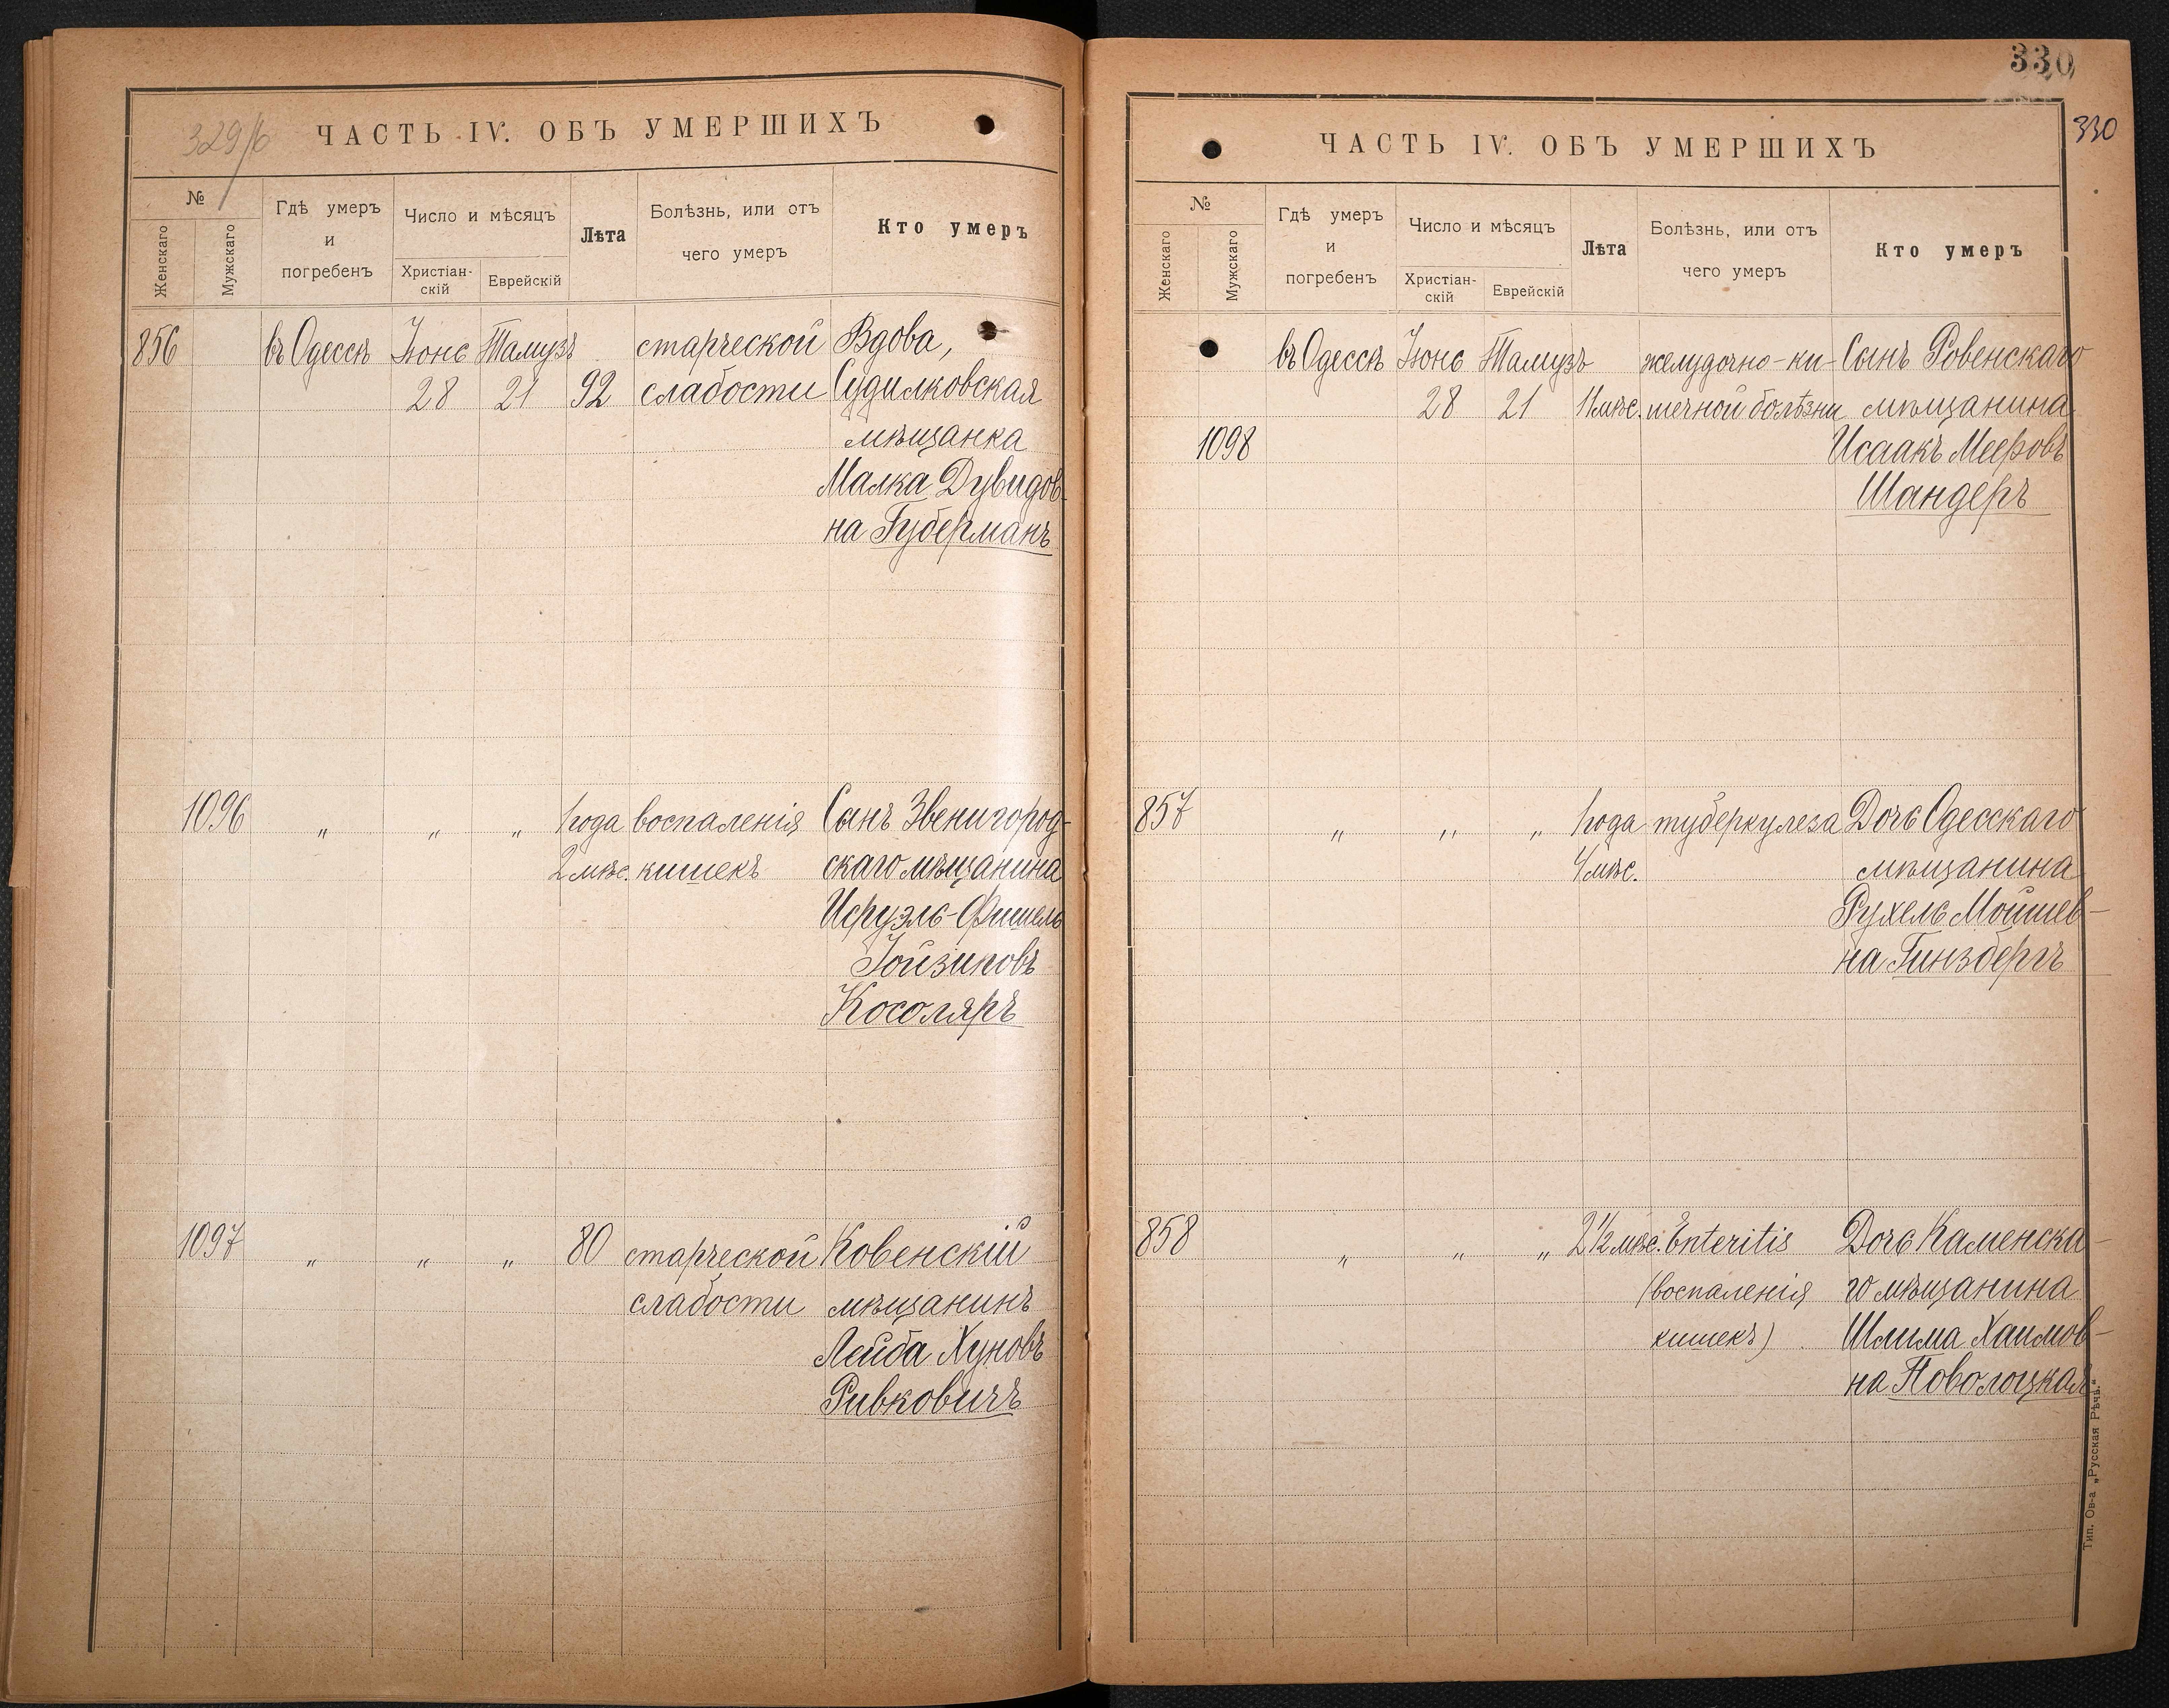 329/б
ЧАСТЬ IV. ОБЪ УМЕРШИХЪ
№
Женскаго
Мужскаго
Гдѣ умеръ
и
погребенъ
Число и мѣсяцъ
Христіан-
скій
Еврейскій
Лѣта
Болѣзнь, или отъ
чего умеръ
Кто умеръ
856 въ Одессѣ Іюнь Тамузъ старческой Вдова,
28 21 92 слабости Судилковская
мѣщанка
Малка Дувидов-
на Губерманъ
1096 " " " 1 года воспаленія Сынъ Звенигород-
2 мѣс. кишекъ скаго мѣщанина
Исруэль-Фишель
Іойзиповъ
Косоляръ
1097 " " " 80 старческой Ковенскій
слабости мѣщанинъ
Лейба Хуновъ
Ривковичъ
330
330
ЧАСТЬ IV. ОБЪ УМЕРШИХЪ
№
Женскаго
Мужскаго
Гдѣ умеръ
и
погребенъ
Число и мѣсяцъ
Христіан-
скій
Еврейскій
Лѣта
Болѣзнь, или отъ
чего умеръ
Кто умеръ
въ Одессѣ Іюнь Тамузъ желудочно-ки- Сынъ Ровенскаго
28 21 11 мѣс. шечной болѣзни мѣщанина
1098 Исаакъ Мееровъ
Шандеръ
857 " " " 1 года туберкулеза Дочь Одесскаго
4 мѣс. мѣщанина
Рухель Мошшев-
на Гинзбергъ
858 " " " 2 1/2 мѣс. Enteritis Дочь Каменска-
(воспаленія го мѣщанина
кишекъ) Шлима Хаимов-
на Поволоцкая
Тип. Ов-а „Русская Рѣчь."